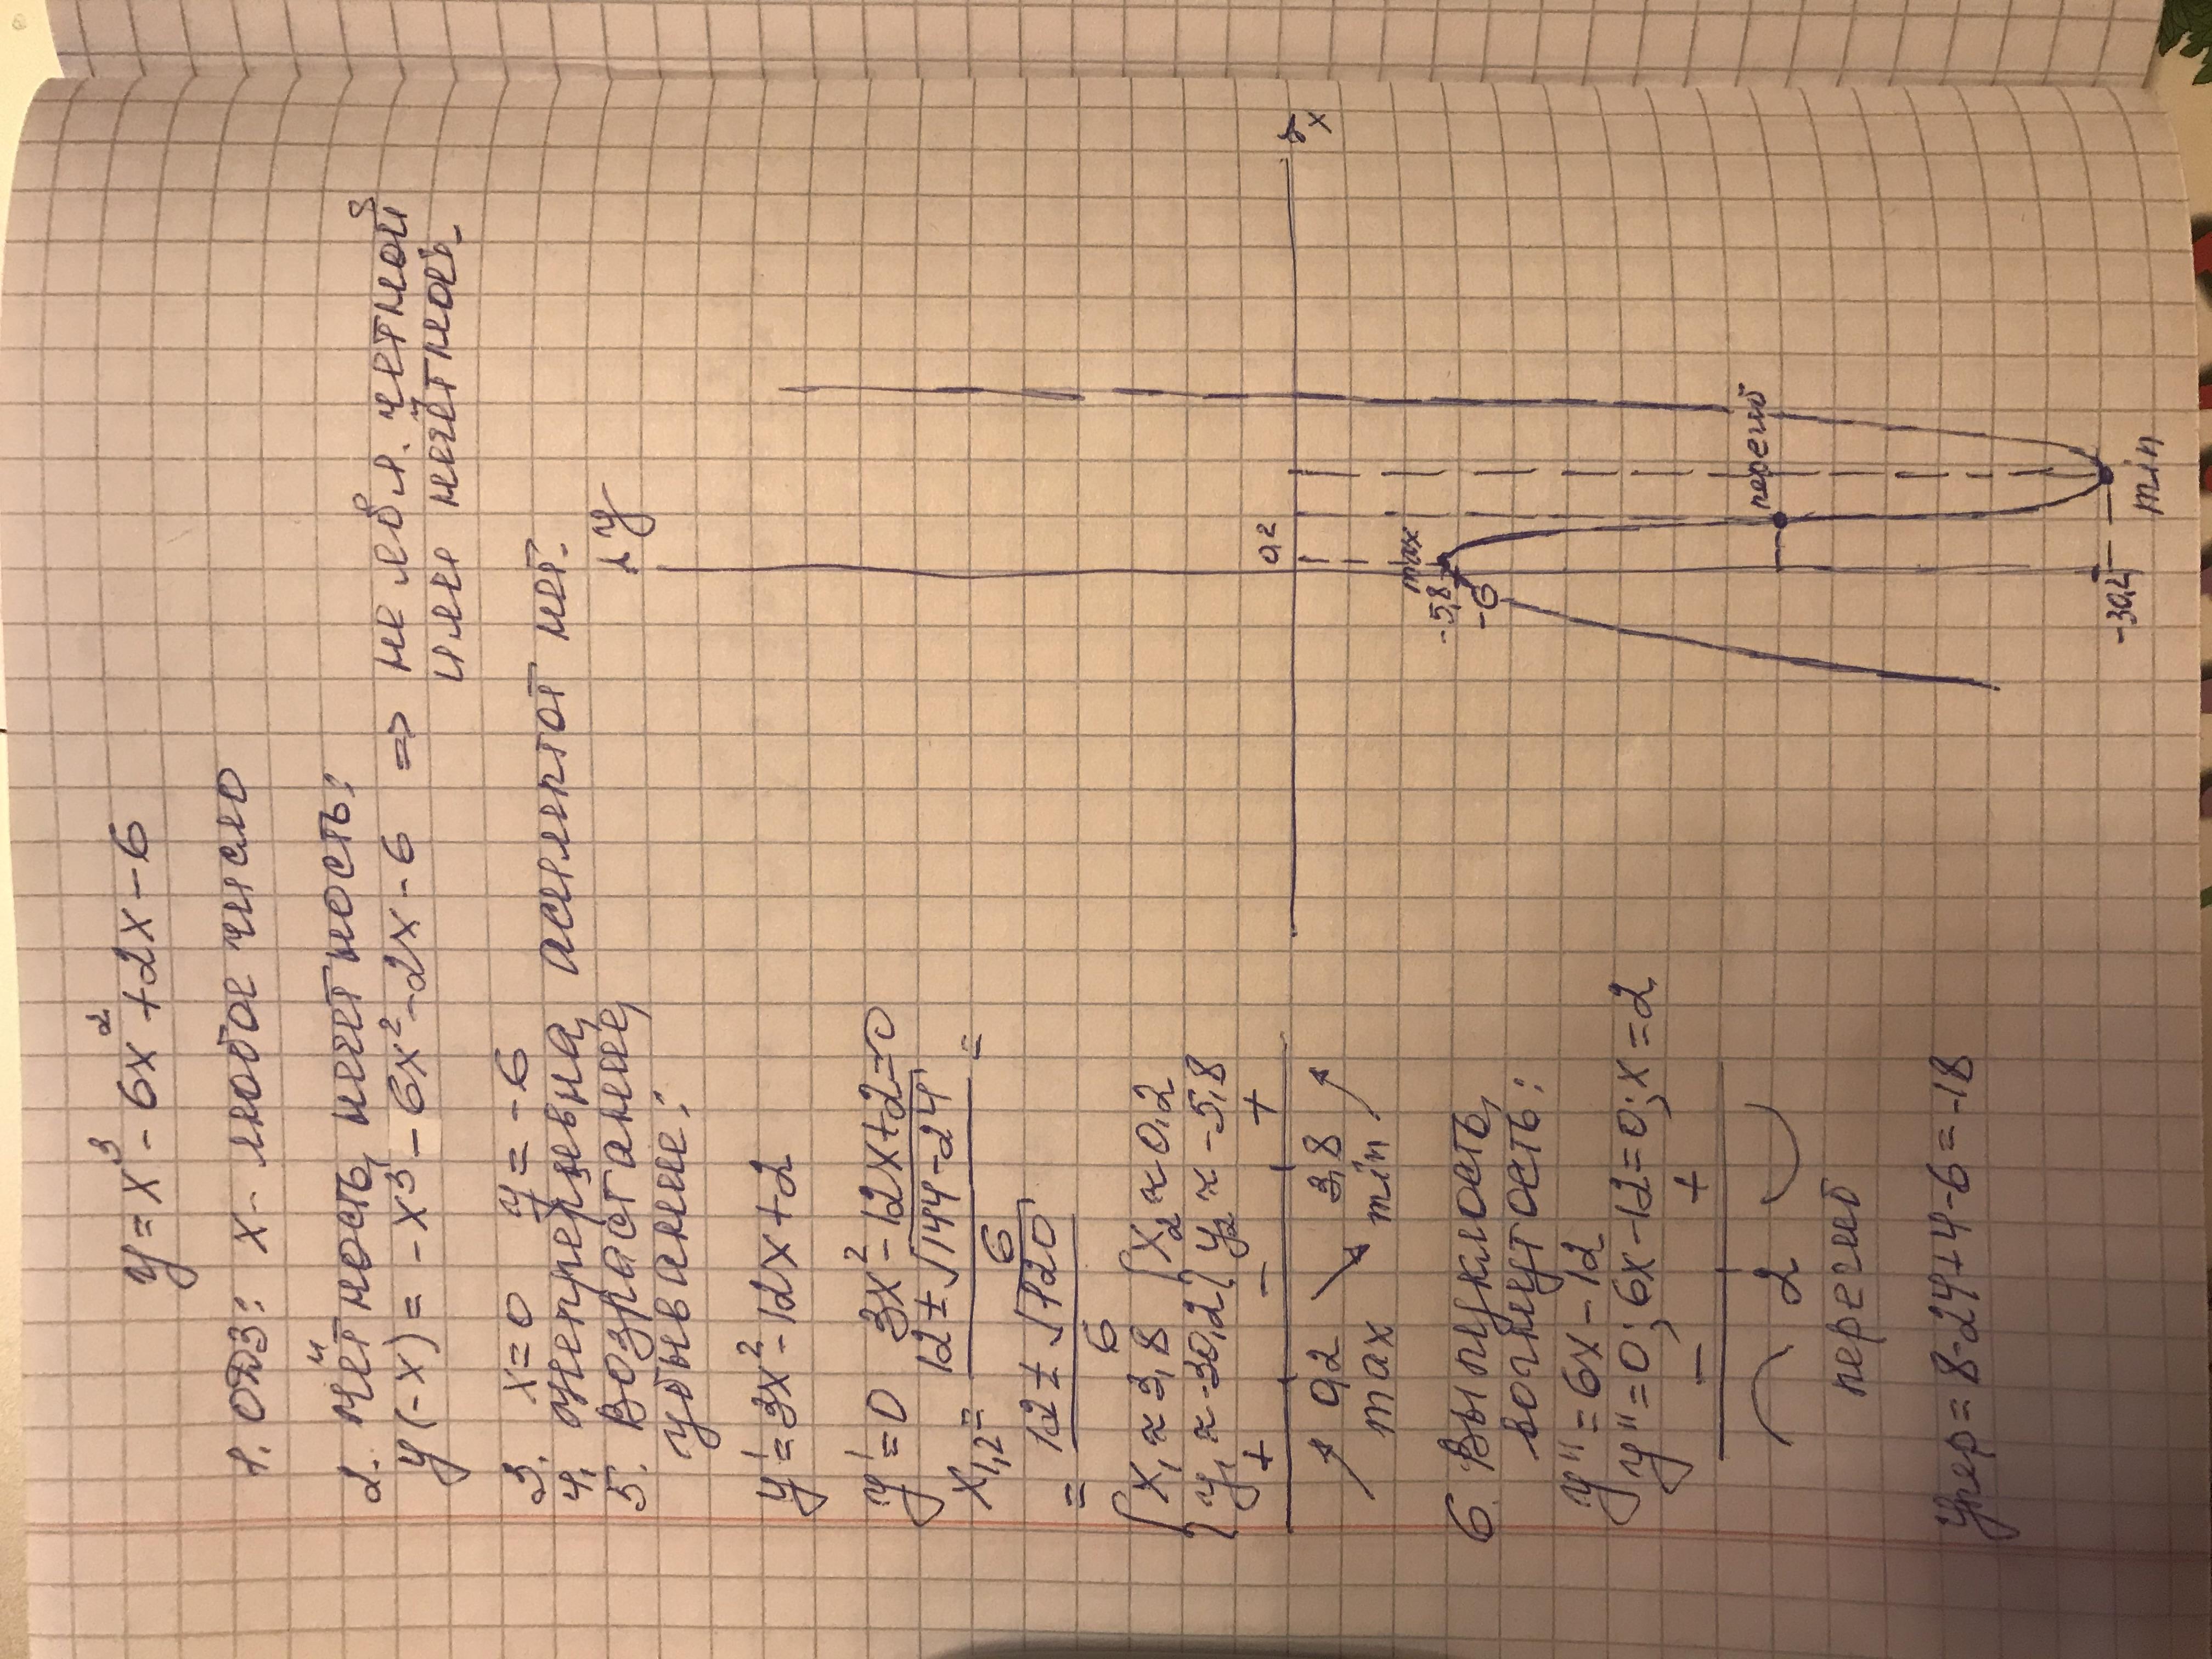 y = x³ - 6x² + 2x - 6
1. ОДЗ: x - любое число
2. чётность, нечетность:
y(-x) = -x³ - 6x² - 2x - 6 => не явл. четной
или нечётной.
3. x = 0 y = -6
4. непрерывна, асимптот нет.
5. Возрастание,
убывание:
y' = 3x² - 12x + 2
y' = 0 3x² - 12x + 2 = 0
x₁,₂ = (12 ± √(144 - 24))/6 =
= (12 ± √120)/6
{ x₁ ≈ 3,8 { x₂ ≈ 0,2
{ y₁ ≈ -30,2 { y₂ ≈ -5,8
+ - +
0,2 3,8
max min
6. Выпуклость,
вогнутость:
y'' = 6x - 12
y'' = 0; 6x - 12 = 0; x = 2
- +
2
перегиб
yпер = 8 - 24 + 4 - 6 = -18
y
x
0,2
max
-5,8
-6
перегиб
-30,2
min